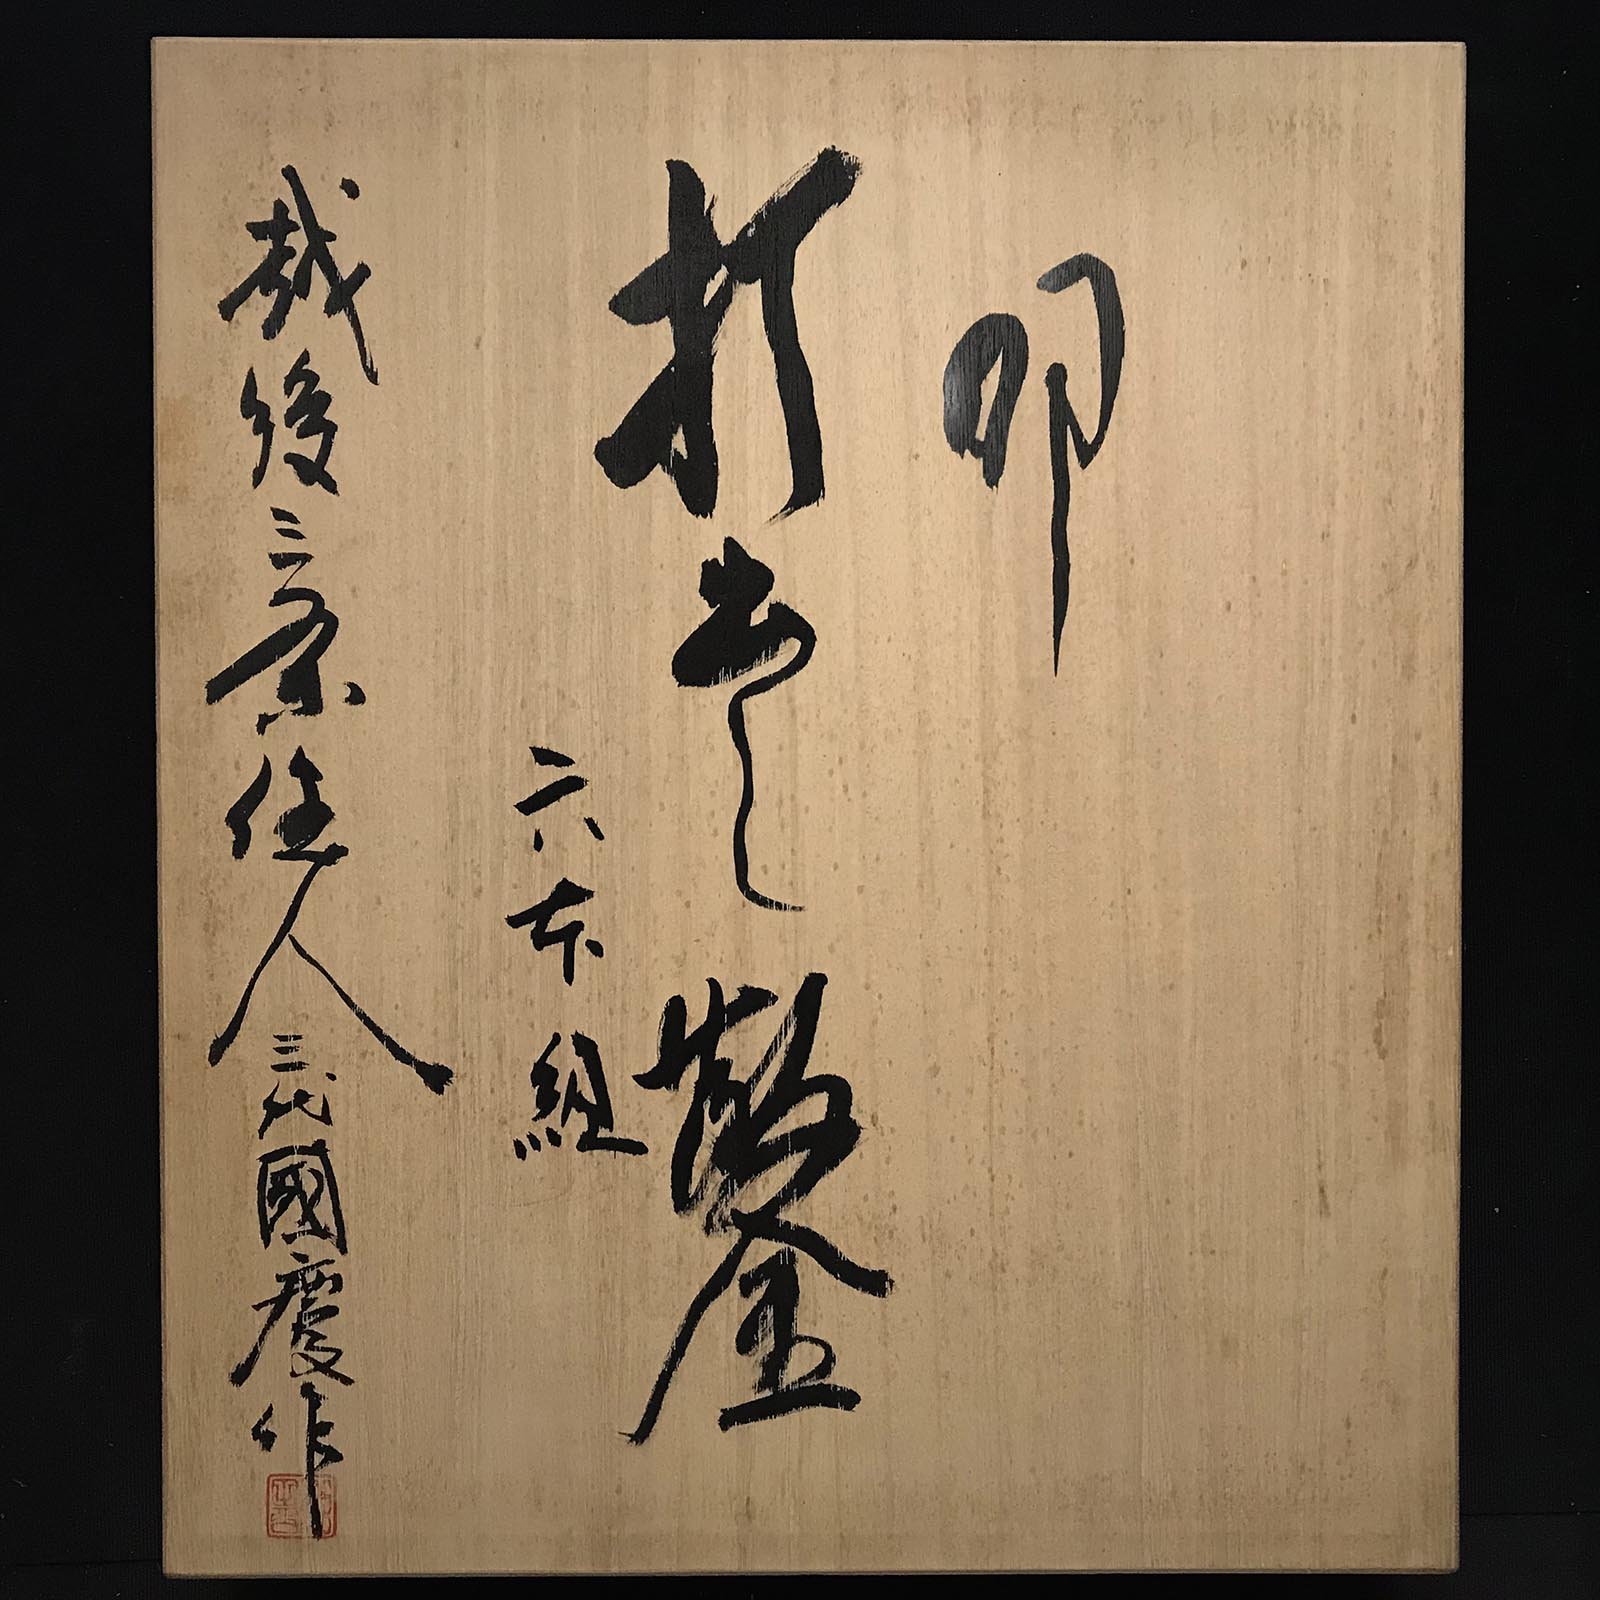 打出し鑿
六本組
越後三条住人 三代國慶作